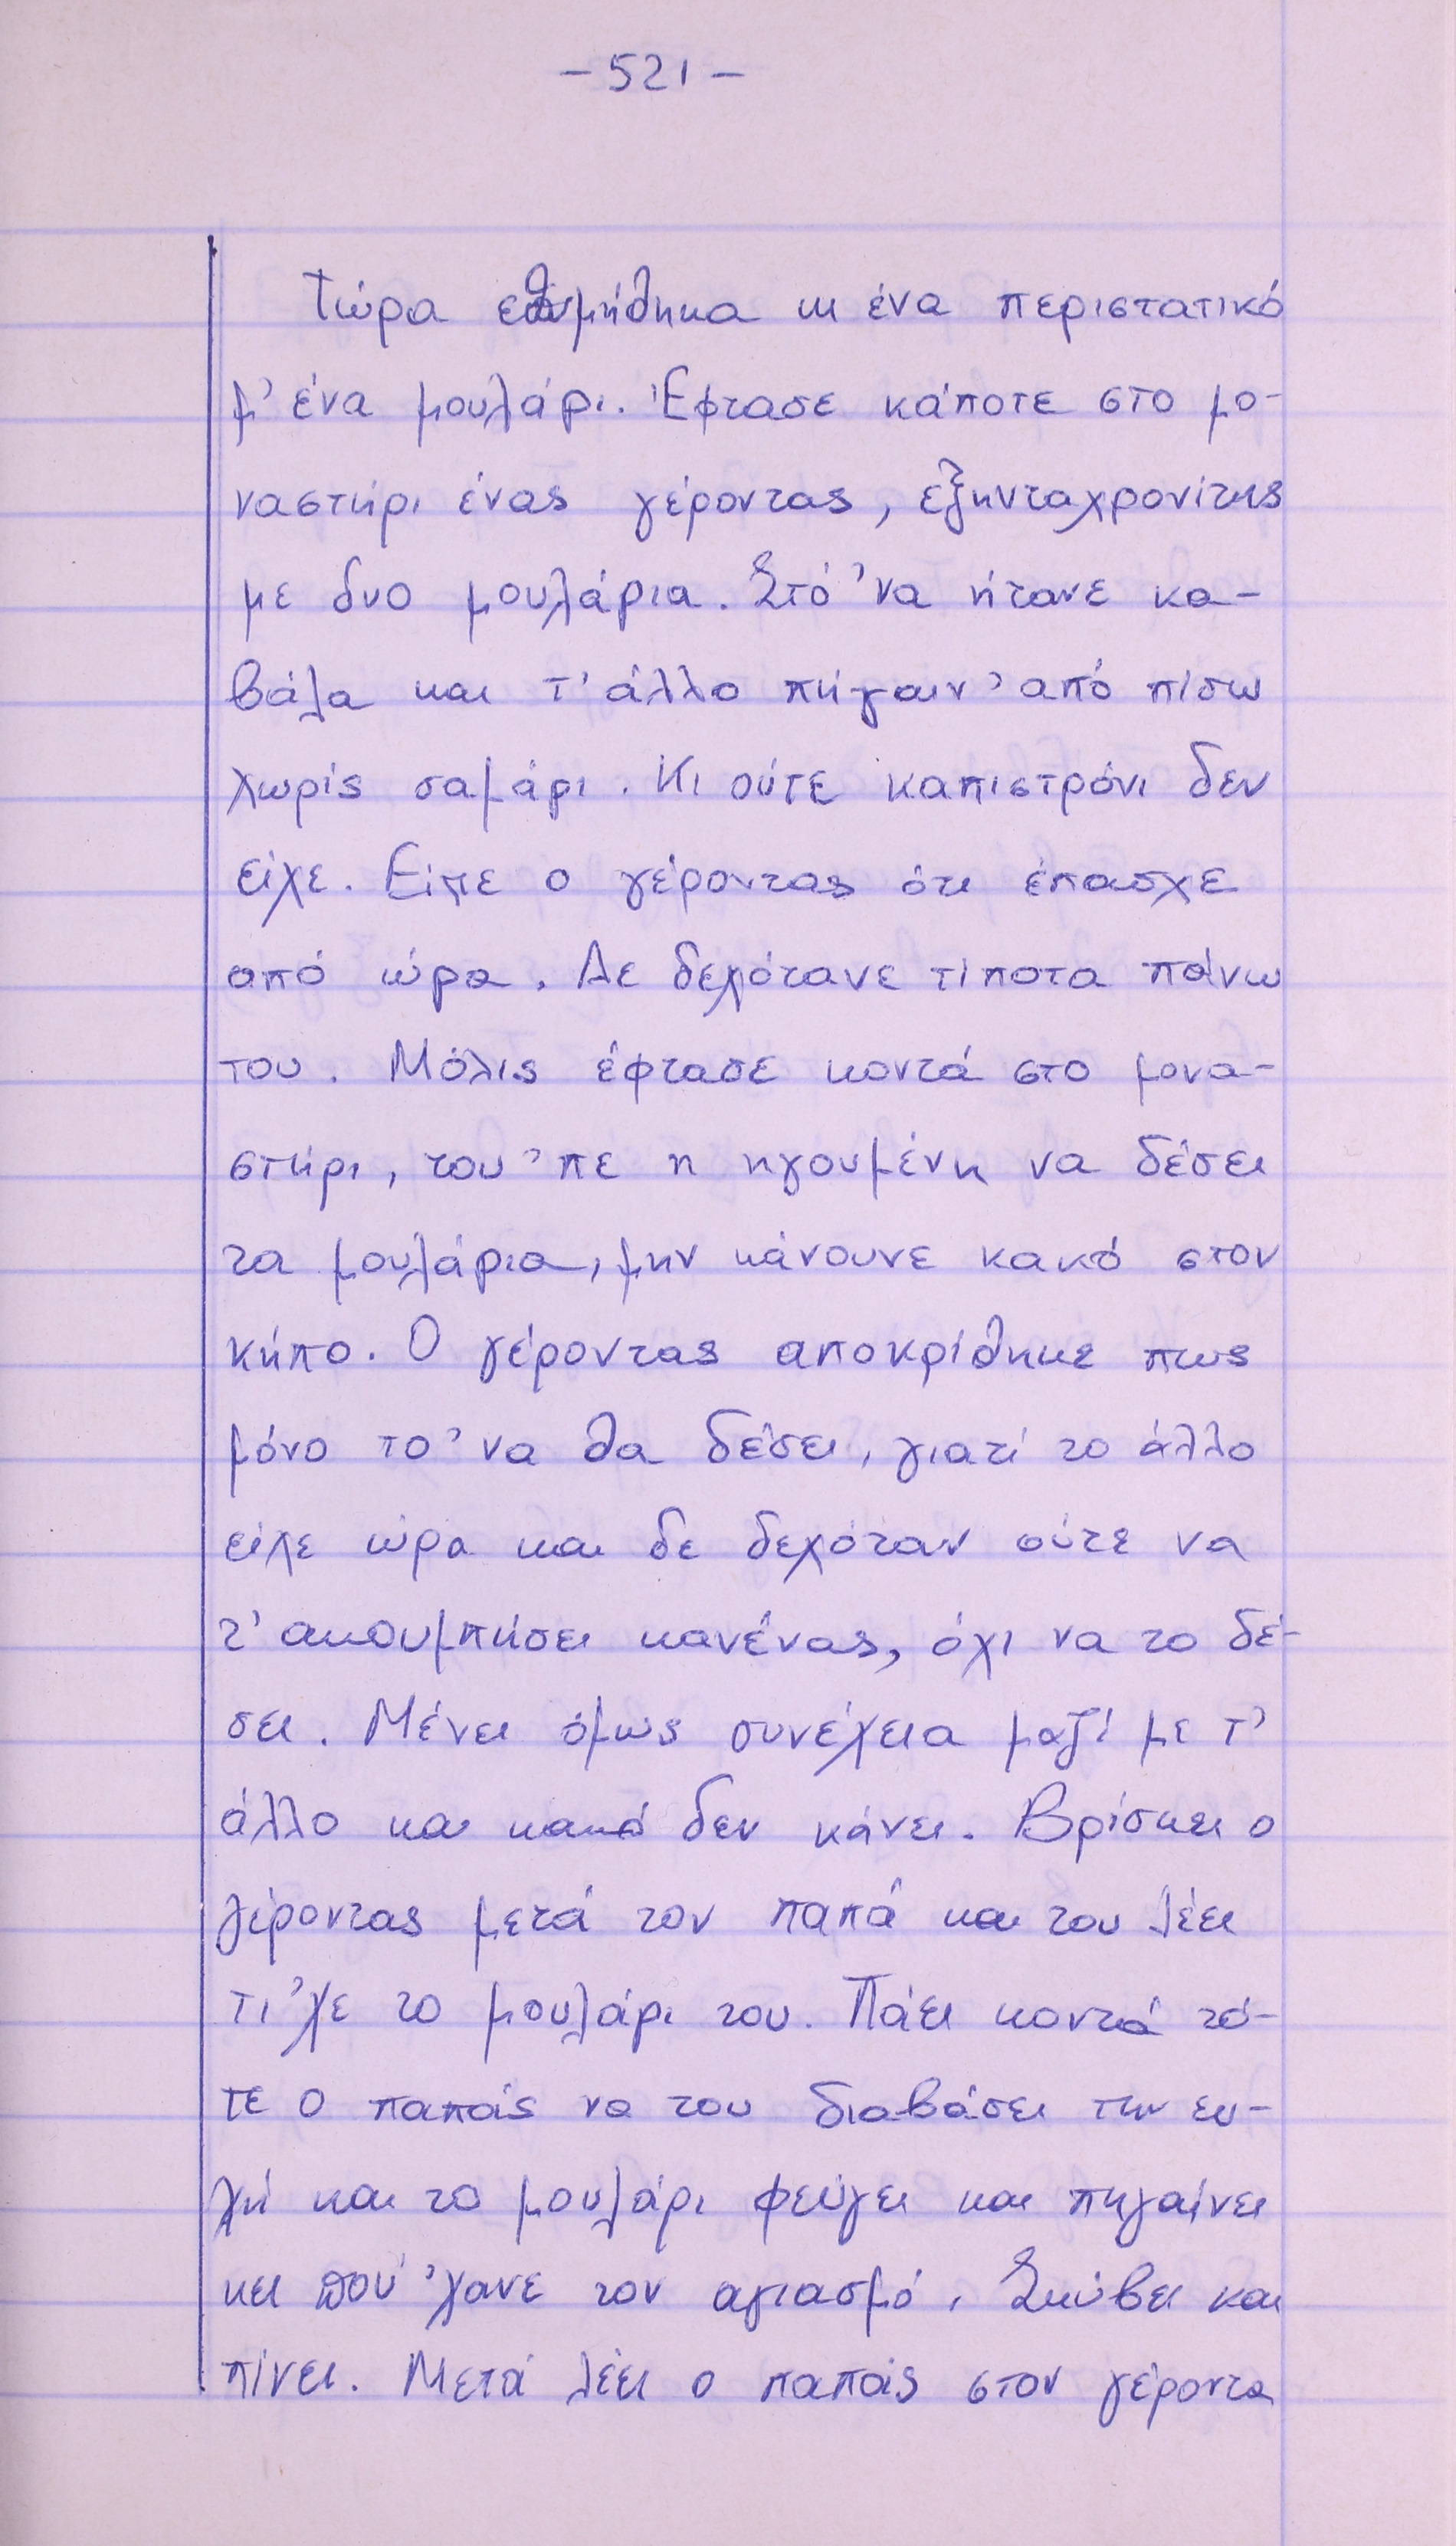 - 521 -
Τώρα εθυμήθηκα κι ένα περιστατικό
μ' ένα μουλάρι. Έφτασε κάποτε στο μο-
ναστήρι ένας γέροντας, εξηνταχρονίτης
με δυο μουλάρια. Στό 'να ήτανε κα-
βάλα και τ' άλλο πήγαιν' από πίσω
χωρίς σαμάρι. Κι ούτε καπιστρόνι δεν
είχε. Είπε ο γέροντας ότι έπασχε
από ώρα. Δε δεχότανε τίποτα πάνω
του. Μόλις έφτασε κοντά στο μονα-
στήρι, του 'πε η ηγουμένη να δέσει
τα μουλάρια, μην κάνουνε κακό στον
κήπο. Ο γέροντας αποκρίθηκε πως
μόνο το 'να θα δέσει, γιατί το άλλο
είχε ώρα και δε δεχόταν ούτε να
τ' ακουμπήσει κανένας, όχι να το δέ-
σει. Μένει όμως συνέχεια μαζί με τ'
άλλο και κακό δεν κάνει. Βρίσκει ο
γέροντας μετά τον παπά και του λέει
τι 'χε το μουλάρι του. Πάει κοντά τό-
τε ο παπάς να του διαβάσει την ευ-
χή και το μουλάρι φεύγει και πηγαίνει
κει πού 'χανε τον αγιασμό. Σκύβει και
πίνει. Μετά λέει ο παπάς στον γέροντα